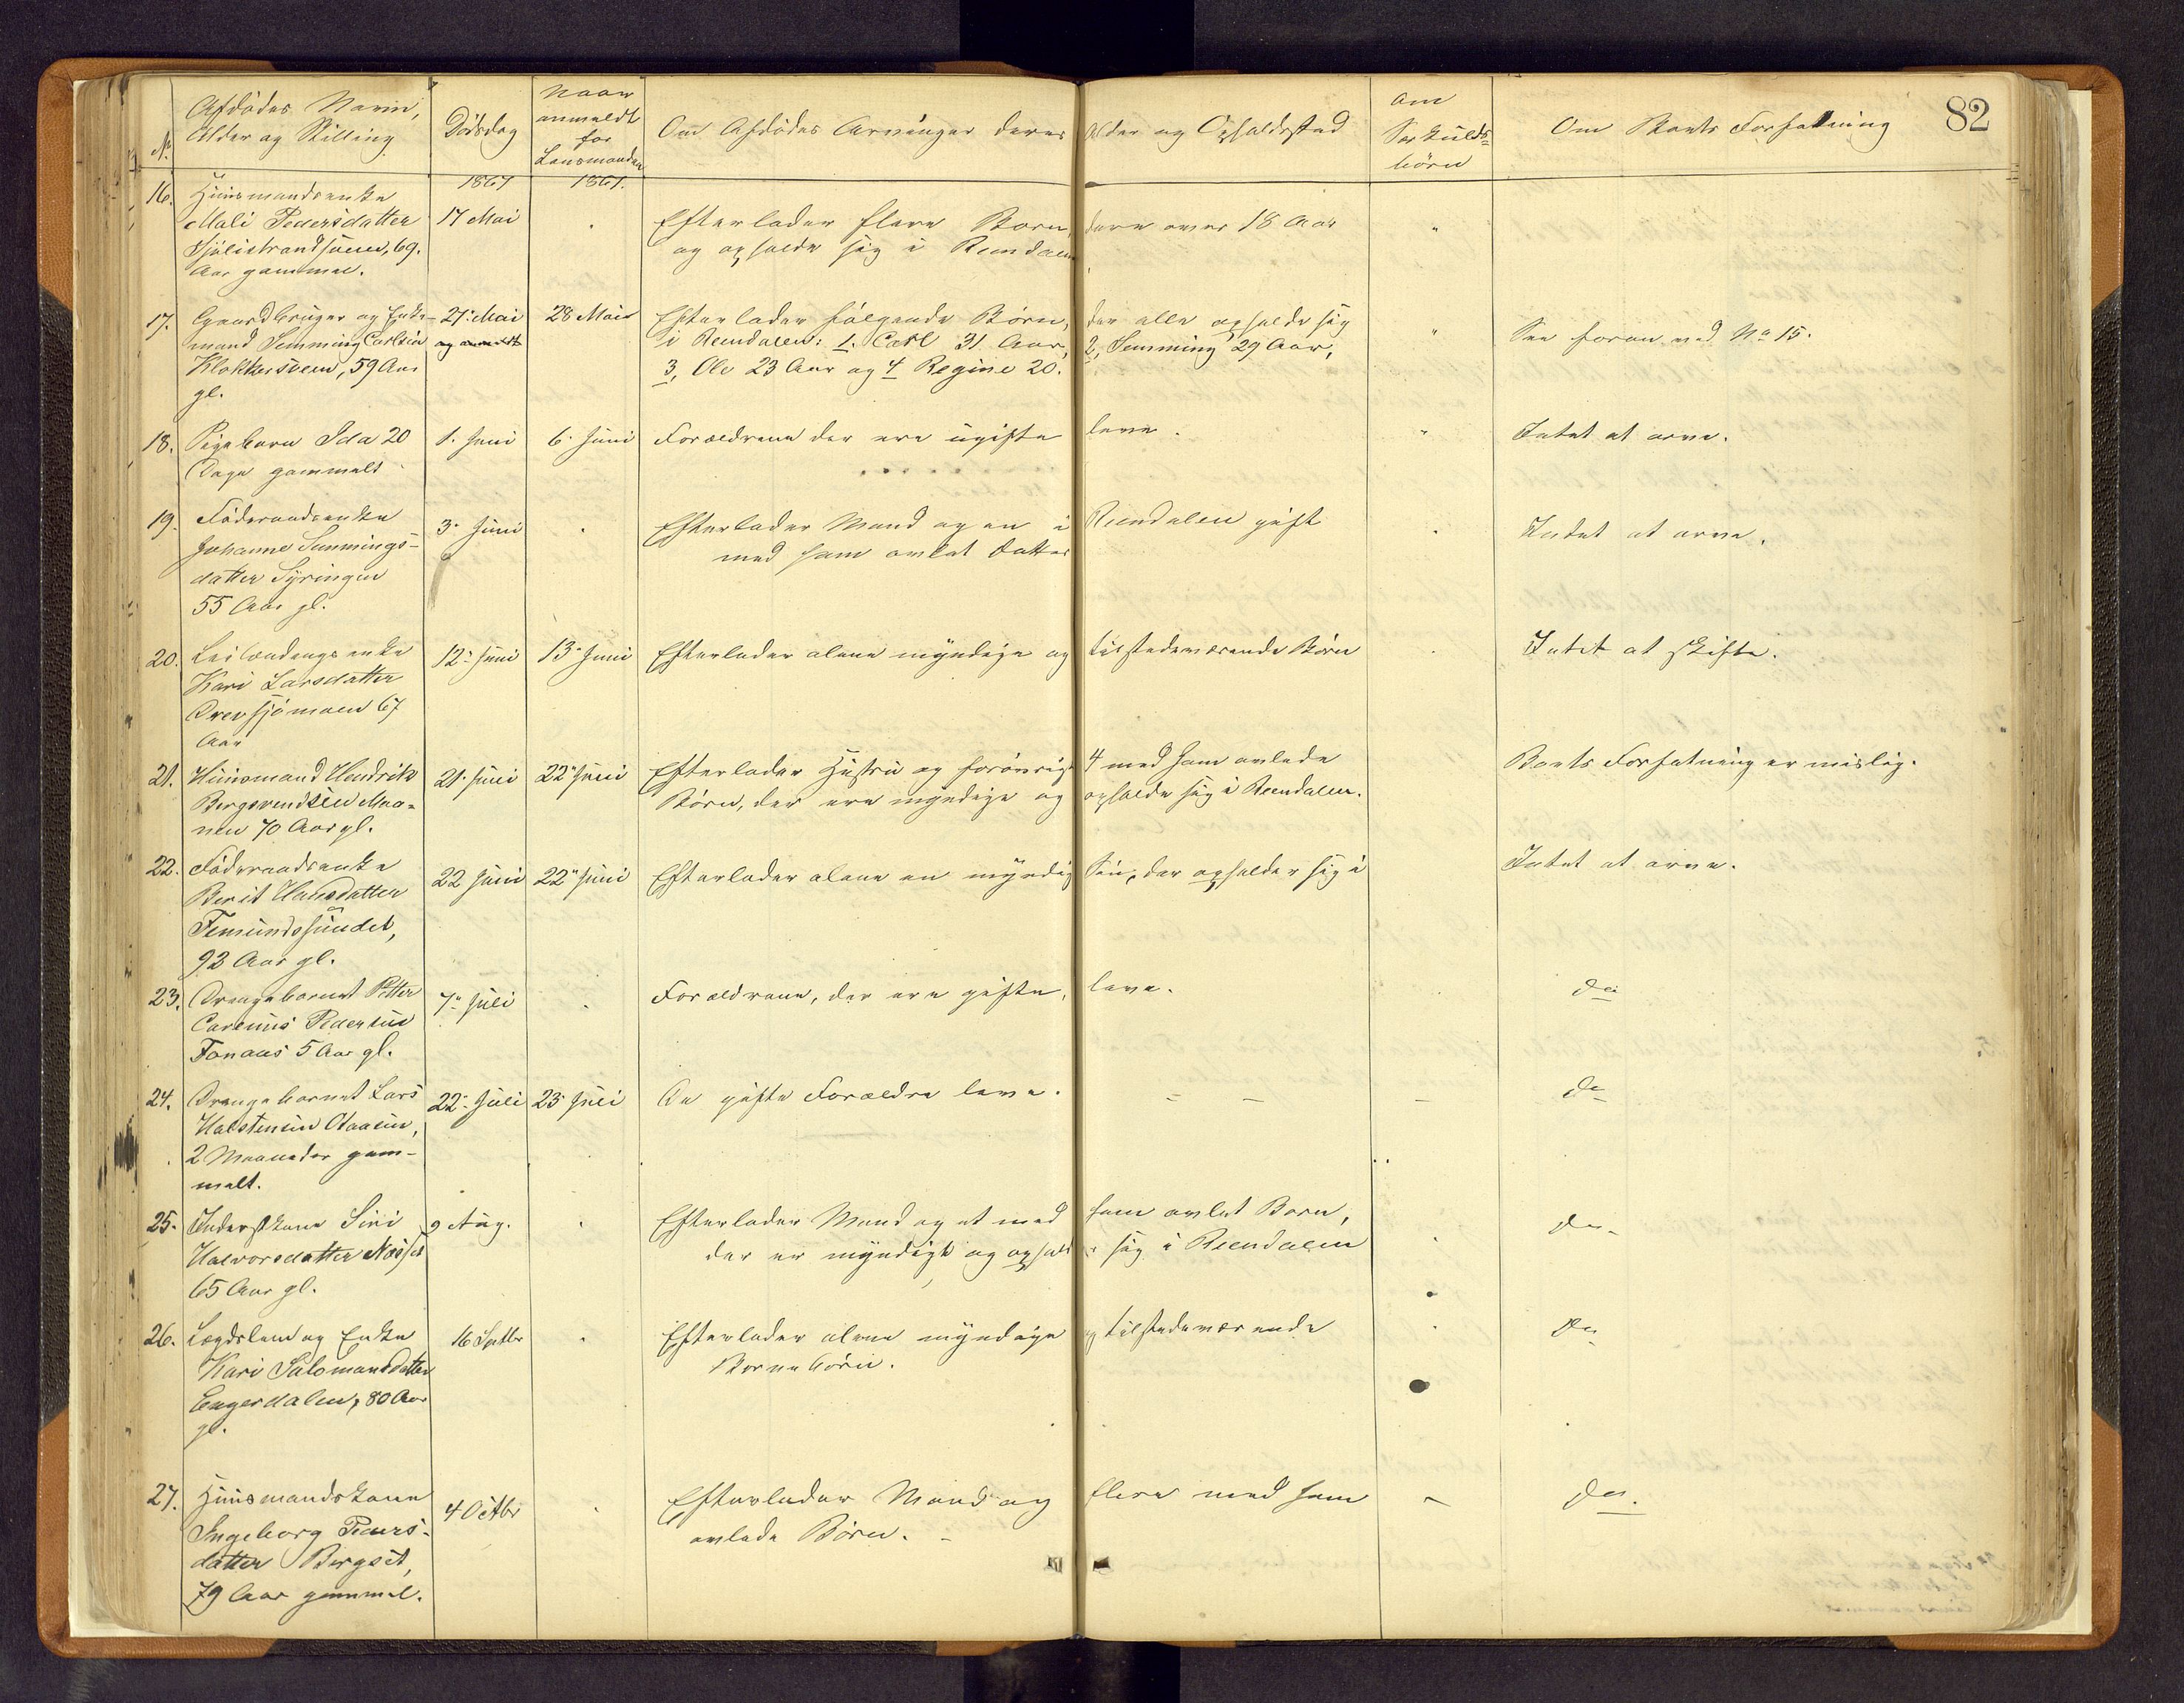 82
No. Afdødes Navn, Alder og Stilling | Dødsdag | Naar anmeldt for Lensmanden | Om Afdødes Arvinger deres Alder og Opholdssted | Om Særkuldsbørn | Om Boets Forfatning
1867 1867.
16. Huusmandsenke
Mali Pedersdatter
69.
Aar gammel.
17 Mai
Efterlader flere Born, dere over 18 Aar
og opholde sig i Rendalen
17. Gaardbruger og Enke-
mand Semming Carlsen
Klokkersveen, 59 Aar
gl.
27. Mai
og anmeldt
28 Mai
Efterlader følgende Børn, der alle opholde sig
i Rendalen: 1. Carl 31 Aar, 2, Semming 29 Aar,
3, Ole 23 Aar og 4 Regine 20.
See foran ved No 15.
18. Pigebarn Ida 20
Dage gammelt
1. Juni
6. Juni
Forældrene der ere ugifte leve.
Intet at arve.
19. Føderaadsenke
Johanne Semmings-
datter Syringen
55 Aar gl.
3. Juni
Efterlader Mand og en i Rendalen gift
med ham avlet Datter
Intet at arve.
20. Leilændingsenke
Kari Larsdatter
Drevsjømoen 67
Aar
12. Juni
13. Juni
Efterlader alene myndige og tilstedeværende Børn
Intet at skifte.
21. Huusmand Hendrik
Bergsvendsen Moa-
nen 70 Aar gl.
21. Juni
22 Juni
Efterlader Hustru og forøvrigt 4 med ham avlede
Børn, der ere myndige og opholde sig i Rendalen.
Boets Forfatning er mislig.
22. Føderaadsenke
Berit Hansdatter
Femundsundet,
92 Aar gl.
22 Juni
22 Juni
Efterlader alene en myndig Søn, der opholder sig i
Intet at arve.
23. Drengebarnet Petter
Carenus Pedersen
Fonaas 5 Aar gl.
7. Juli
Forældrene, der ere gifte, leve.
do
24. Drengebarnet Lars
Halstensen Aaasen,
2 Maaneder gam-
melt.
22. Juli
23 Juli
De gifte Forældre leve.
do
25. Inderstkone Siri
Halvorsdatter
65 Aar gl.
9 Aug.
Efterlader Mand og et med ham avlet Barn,
der er myndigt og opholder sig i Rendalen
do
26. Lægdslem og Enke
Kari Salomonsdatter
Engerdalen, 80 Aar
gl.
16 Septbr
Efterlader alene myndige og tilstedeværende
Børnebørn.
do
27. Huusmandskone
Ingeborg Peders-
datter Bergset,
79 Aar gammel.
4 Octbr
Efterlader Mand og flere med ham
avlede Børn.
do.